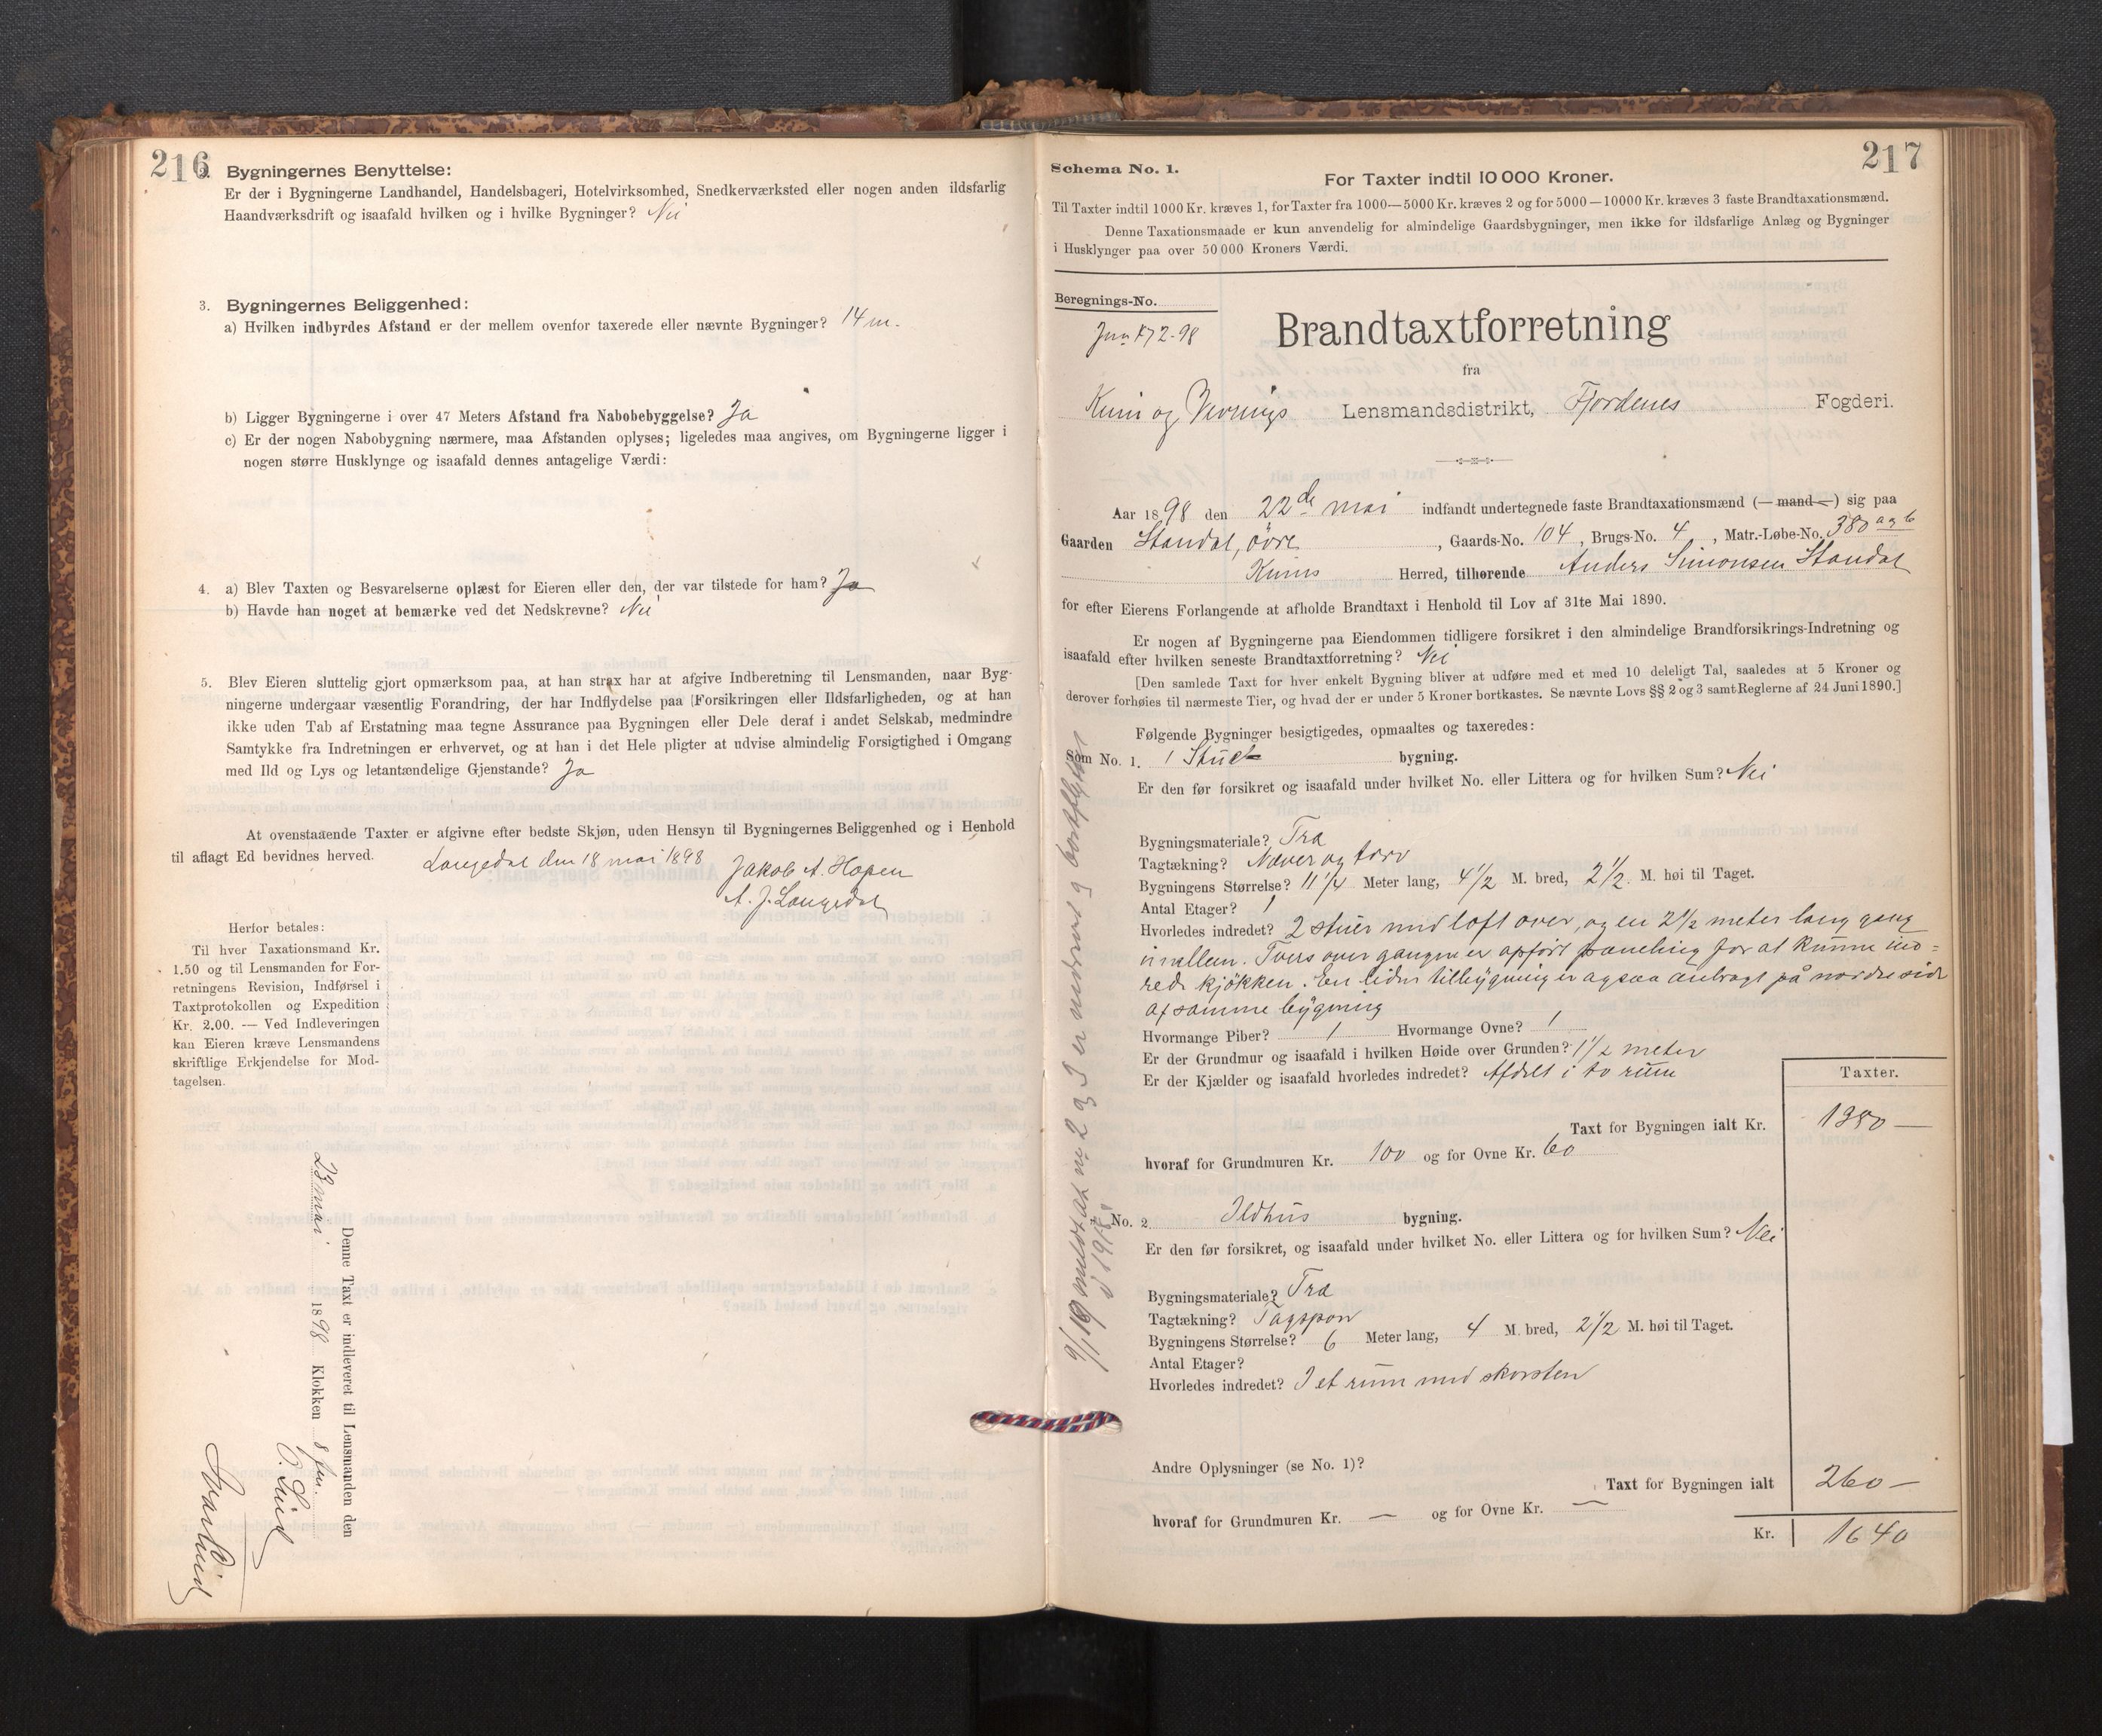 216
2. Bygningernes Benyttelse:
Er der i Bygningerne Landhandel, Handelsbageri, Hotelvirksomhed, Snedkerværksted eller nogen anden ildsfarlig
Haandværksdrift og isaafald hvilken og i hvilke Bygninger? Nei
3. Bygningernes Beliggenhed:
a) Hvilken indbyrdes Afstand er der mellem ovenfor taxerede eller nævnte Bygninger? 14 m.
b) Ligger Bygningerne i over 47 Meters Afstand fra Nabobebyggelse? Ja
c) Er der nogen Nabobygning nærmere, maa Afstanden oplyses; ligeledes maa angives, om Bygningerne ligger i
nogen større Husklynge og isaafald dennes antagelige Værdi:
4. a) Blev Taxten og Besvarelserne oplæst for Eieren eller den, der var tilstede for ham? Ja
b) Havde han noget at bemærke ved det Nedskrevne? Nei
5. Blev Eieren sluttelig gjort opmærksom paa, at han strax har at afgive Indberetning til Lensmanden, naar Byg-
ningerne undergaar væsentlig Forandring, der har Indflydelse paa Forsikringen eller Ildsfarligheden, og at han
ikke uden Tab af Erstatning maa tegne Assurance paa Bygningen eller Dele deraf i andet Selskab, medmindre
Samtykke fra Indretningen er erhvervet, og at han i det Hele pligter at udvise almindelig Forsigtighed i Omgang
med Ild og Lys og letantændelige Gjenstande? Ja
At ovenstaaende Taxter er afgivne efter bedste Skjøn, uden Hensyn til Bygningernes Beliggenhed og i Henhold
til aflagt Ed bevidnes herved.
Langedal den 18 mai 1898
Jakob A. Hopen
A. J. Langedal
Herfor betales:
Til hver Taxationsmand Kr.
1.50 og til Lensmanden for For-
retningens Revision, Indførsel i
Taxtprotokollen og Expedition
Kr. 2.00. — Ved Indleveringen
kan Eieren kræve Lensmandens
skriftlige Erkjendelse for Mod-
tagelsen.
Denne Taxt er indleveret til Lensmanden den
23 mai 1898 Klokken 8 fm.
217
Schema No. 1.
For Taxter indtil 10 000 Kroner.
Til Taxter indtil 1000 Kr. kræves 1, for Taxter fra 1000—5000 Kr. kræves 2 og for 5000—10000 Kr. kræves 3 faste Brandtaxationsmænd.
Denne Taxationsmaade er kun anvendelig for almindelige Gaardsbygninger, men ikke for ildsfarlige Anlæg og Bygninger
i Husklynger paa over 50 000 Kroners Værdi.
Beregnings-No.
Brandtaxtforretning
fra
Kinn og Vevrings Lensmandsdistrikt, Fjordenes Fogderi.
Aar 1898 den 22de mai indfandt undertegnede faste Brandtaxationsmænd (— mand —) sig paa
Gaarden Standal, övre, Gaards-No. 104, Brugs-No. 4, Matr.-Løbe-No. 380 a og b
Kinns Herred, tilhørende Anders Simonsen Standal
for efter Eierens Forlangende at afholde Brandtaxt i Henhold til Lov af 31te Mai 1890.
Er nogen af Bygningerne paa Eiendommen tidligere forsikret i den almindelige Brandforsikrings-Indretning og
isaafald efter hvilken seneste Brandtaxtforretning? Nei
[Den samlede Taxt for hver enkelt Bygning bliver at udføre med et med 10 deleligt Tal, saaledes at 5 Kroner og
derover forhøies til nærmeste Tier, og hvad der er under 5 Kroner bortkastes. Se nævnte Lovs §§ 2 og 3 samt Reglerne af 24 Juni 1890.]
Følgende Bygninger besigtigedes, opmaaltes og taxeredes:
Som No. 1. 1 Stue bygning.
Er den før forsikret og isaafald under hvilket No. eller Littera og for hvilken Sum? Nei
Bygningsmateriale? Træ
Tagtækning? Næver og torv
Bygningens Størrelse? 11 1/4 Meter lang, 4 1/2 M. bred, 2 1/2 M. høi til Taget.
Antal Etager? 1
Hvorledes indredet? 2 stuer med loft over, og en 2 1/2 meter lang gang
imellem. Tvers over gangen er opført paneling for at kunne ind-
rede kjøkken. En liden tilbygning er ogsaa anbragt på nordre side
af samme bygning
Hvormange Piber? 1 Hvormange Ovne? 1
Er der Grundmur og isaafald i hvilken Høide over Grunden? 1 1/2 meter
Er der Kjælder og isaafald hvorledes indredet? Afdelt i to rum
Taxter.
Taxt for Bygningen ialt Kr. 1380 —
hvoraf for Grundmuren Kr. 100 og for Ovne Kr. 60
No. 2 Ildhus bygning.
Er den før forsikret, og isaafald under hvilket No. eller Littera og for hvilken Sum? Nei
Bygningsmateriale? Træ
Tagtækning? Tagspon
Bygningens Størrelse? 6 Meter lang, 4 M. bred, 2 1/2 M. høi til Taget.
Antal Etager?
Hvorledes indredet? I et rum med skorsten
Andre Oplysninger (se No. 1)?
Taxt for Bygningen ialt 260 —
hvoraf for Grundmuren Kr. — og for Ovne Kr. —
Kr. 1640